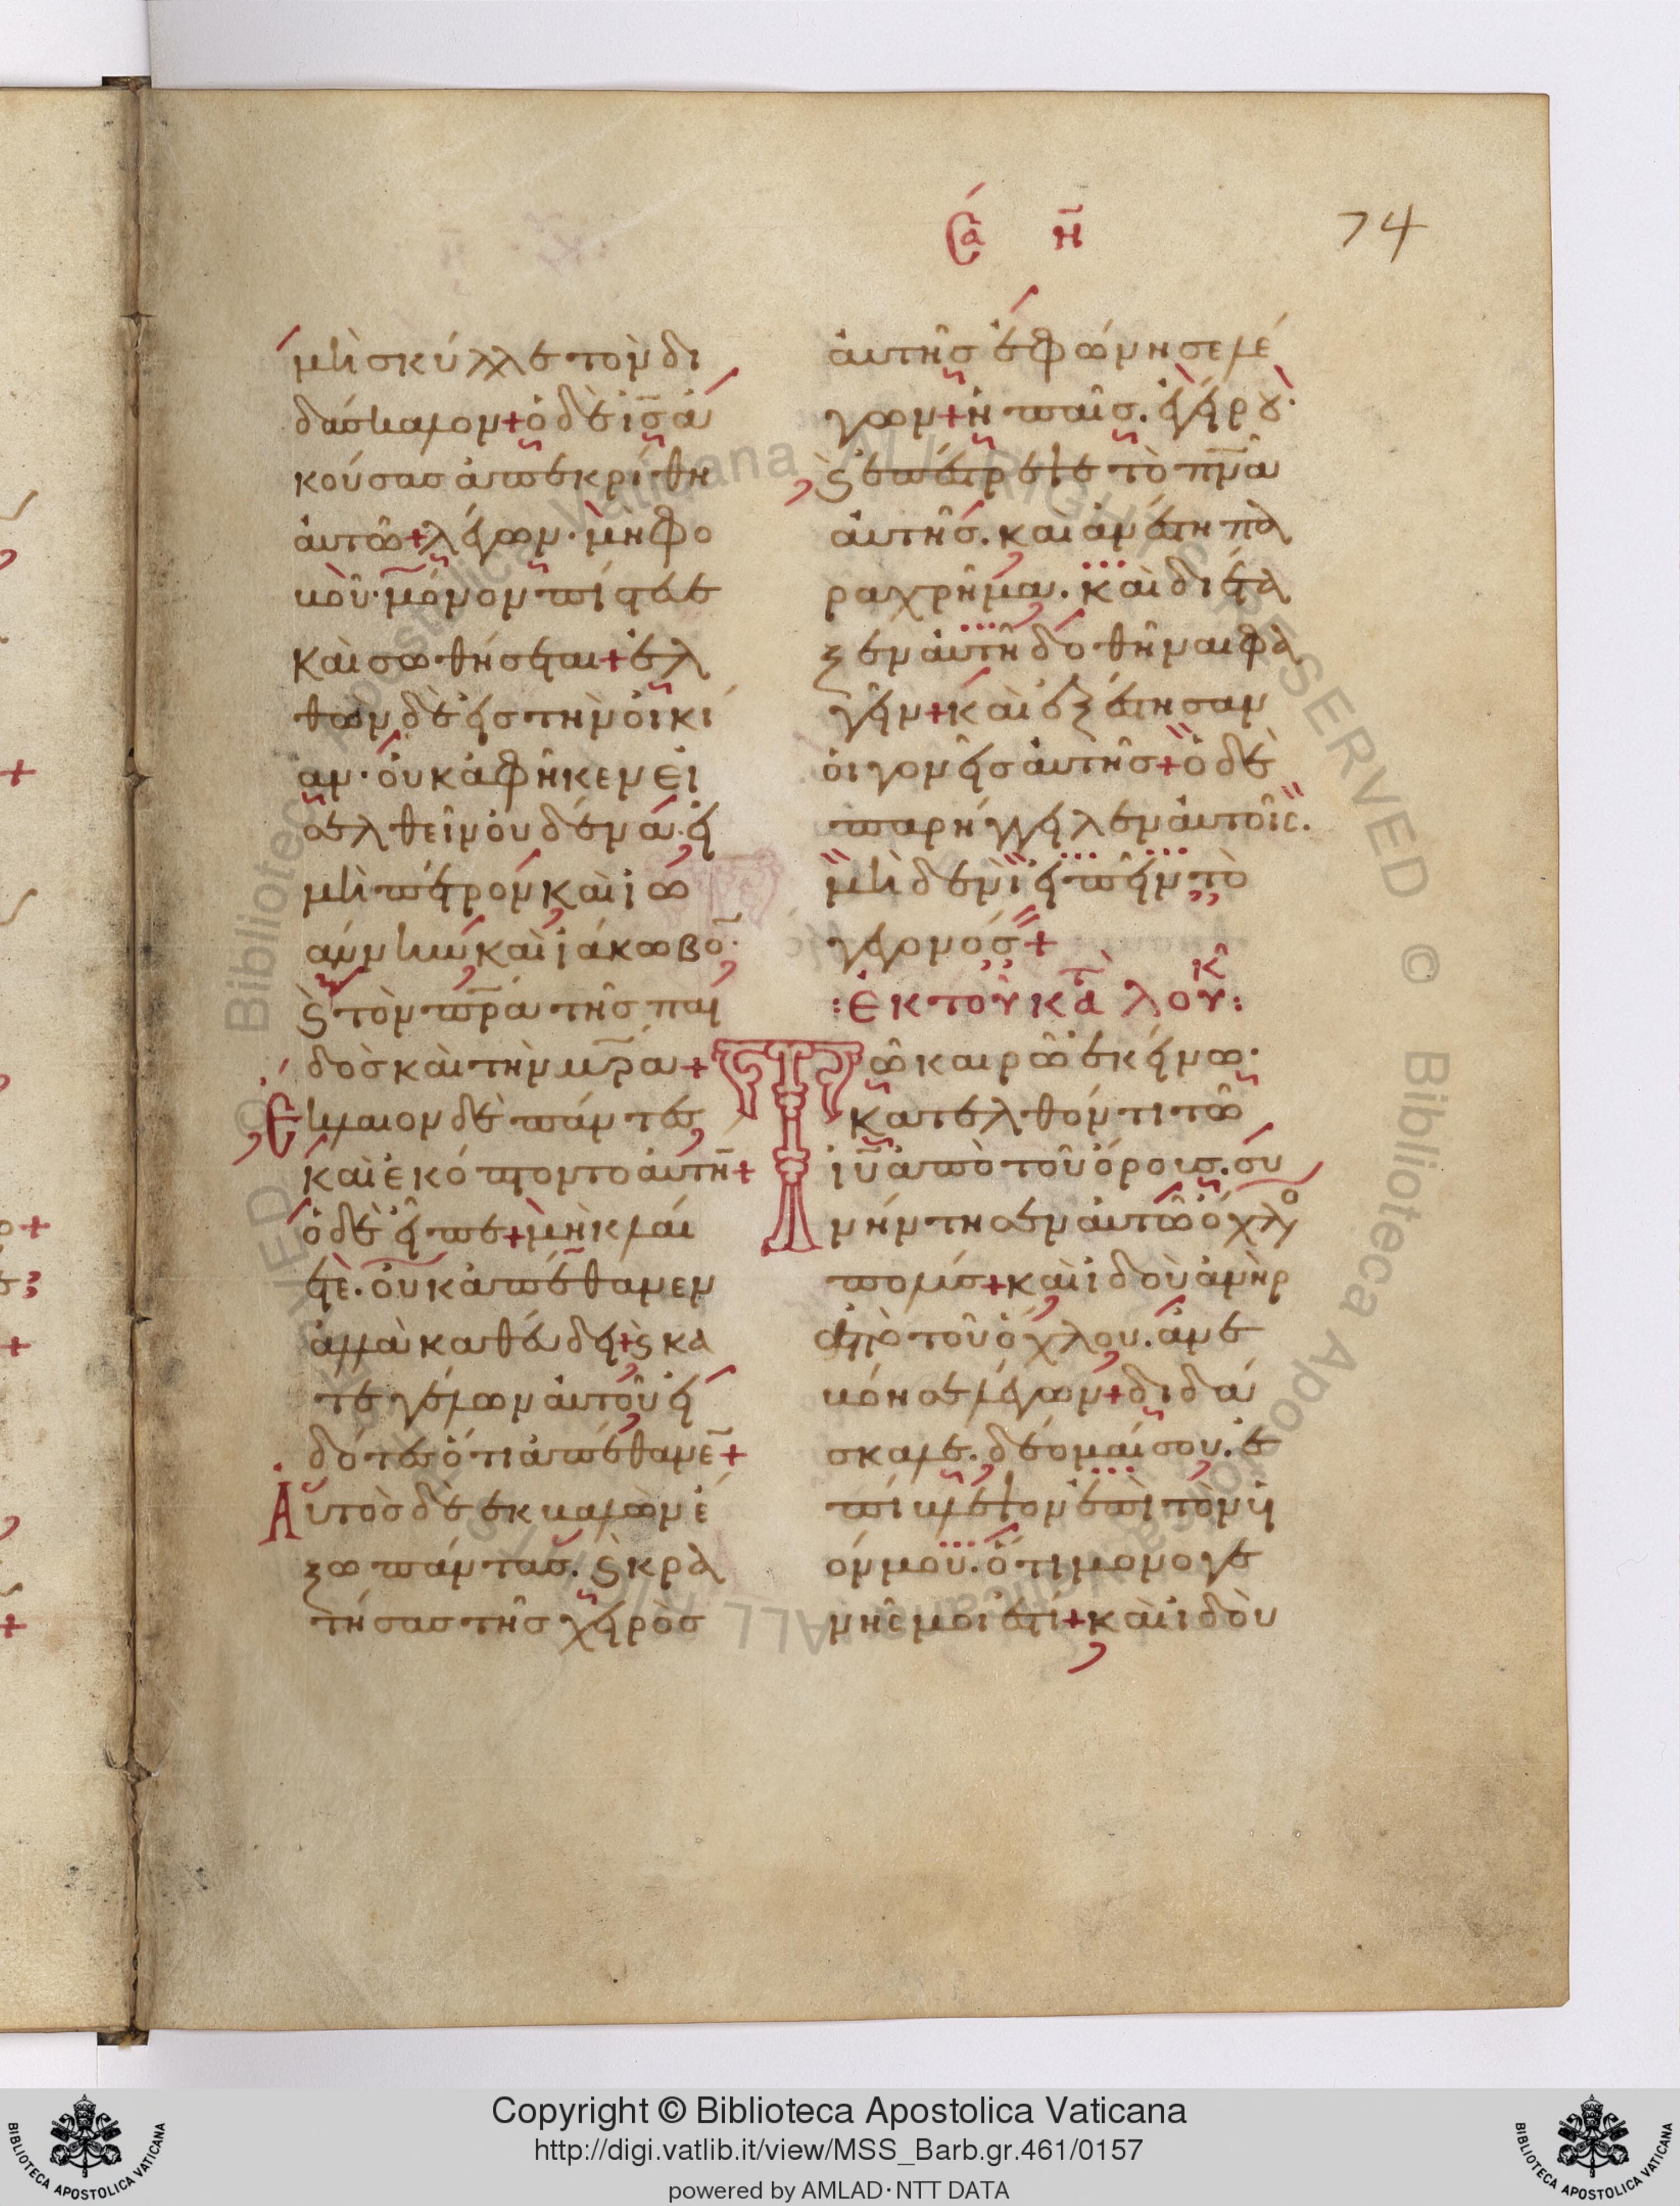 Σα η
74
μὴ σκύλλε τὸν δι
δάσκαλον + ὁ δὲ ις ἀ
κούσας ἀπεκρίθη
αὐτῶ + λέγων · μὴ φο
βοῦ · μόνον πίστευε
καὶ σωθήσεται + ἐλ
θὼν δὲ εἰς τὴν οἰκί
αν · οὐκ ἀφῆκεν εἰ
σελθεῖν οὐδένα · εἰ
μὴ πέτρον καὶ ἰω
άννην καὶ ἰάκωβο̅ ·
ϗ τὸν πρα τῆς παι
δὸς καὶ τὴν μρα +
Ἔκλαιον δὲ πάντες
καὶ ἐκόπτοντο αὐτη̅ +
ὁ δὲ εἶπε + μὴ κλαί
ετε · οὐκ ἀπέθανεν
ἀλλὰ καθεύδει + ϗ κα
τεγέλων αὐτοῦ εἰ
δότες ὅτι ἀπέθανε̅ +
Αὐτὸς δὲ ἐκβαλὼν ἔ
ξω πάντας . ϗ κρα
τήσας τῆς χειρὸς
αὐτῆς ἐφώνησε λέ
γων + ἡ παῖς . ἐγείρου ·
ϗ ἐπέστρεψε τὸ πνα
αὐτῆς . καὶ ἀνέστη πα
ραχρῆμα . καὶ διέτα
ξεν αὐτῆ δοθῆναι φα
γεῖν + καὶ ἐξέστησαν
οἱ γονεῖς αὐτῆς + ὁ δὲ
παρήγγειλεν αὐτοῖς .
μηδενὶ εἰπεῖν τὸ
γεγονός +
: Ἐκ τοῦ κατὰ λουκ :
Τῶ καιρῶ ἐκείνω ·
κατελθόντι τῶ
ιυ ἀπὸ τοῦ ὄρους . συ
νήντησεν αὐτῶ ὄχλο
πολύς + καὶ ἰδοὺ ἀνὴρ
ἀπὸ τοῦ ὄχλου . ἀνε
βόησε λέγων + διδά
σκαλε . δέομαί σου . ἐ
πίβλεψον ἐπὶ τὸν υἱ
όν μου . ὅτι μονογε
νής μοι ἐστί + καὶ ἰδοὺ
© Biblioteca Apostolica Vaticana ALL RIGHTS RESERVED
Copyright © Biblioteca Apostolica Vaticana
http://digi.vatlib.it/view/MSS_Barb.gr.461/0157
powered by AMLAD·NTT DATA
BIBLIOTECA APOSTOLICA VATICANA
BIBLIOTECA APOSTOLICA VATICANA